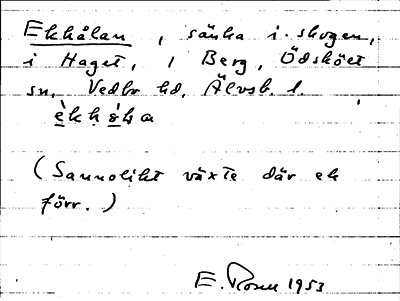 Ekhålan, sänka i skogen,
i Haget, 1 Berg, Ödsköet
sn, Vedbo hd, Älvsb. l.
(Sannolikt växte där ek
förr.)
E. Rosu 1953